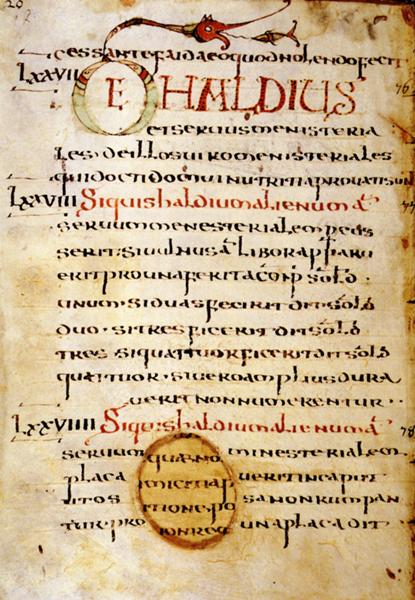 20
cessantefaidaeoquodnolendofecit
LXXVII DE HALDIUS 76
etseruismenisteria
les deillosuiromenisteriales
quidoctidomuinutritiaprouatisun
LXXVIII Siquishaldiumalienuma 77
seruummenesterialempcus
serit:siuulnusa liborapparu
eritprounaferitaconp sold
unum·siduasfecirit dit sold
duo·sitresficerit dit sold
tres siquattuorficerit dit sold
quattuor·siueroampliusdura
ueritnonnumerentur·
LXXVIIII Siquishaldiumalienuma 78
seruum quaeno ministerialem
placa ueritincapit
itos sanonrumpan
turpro ionreg unaplacadit